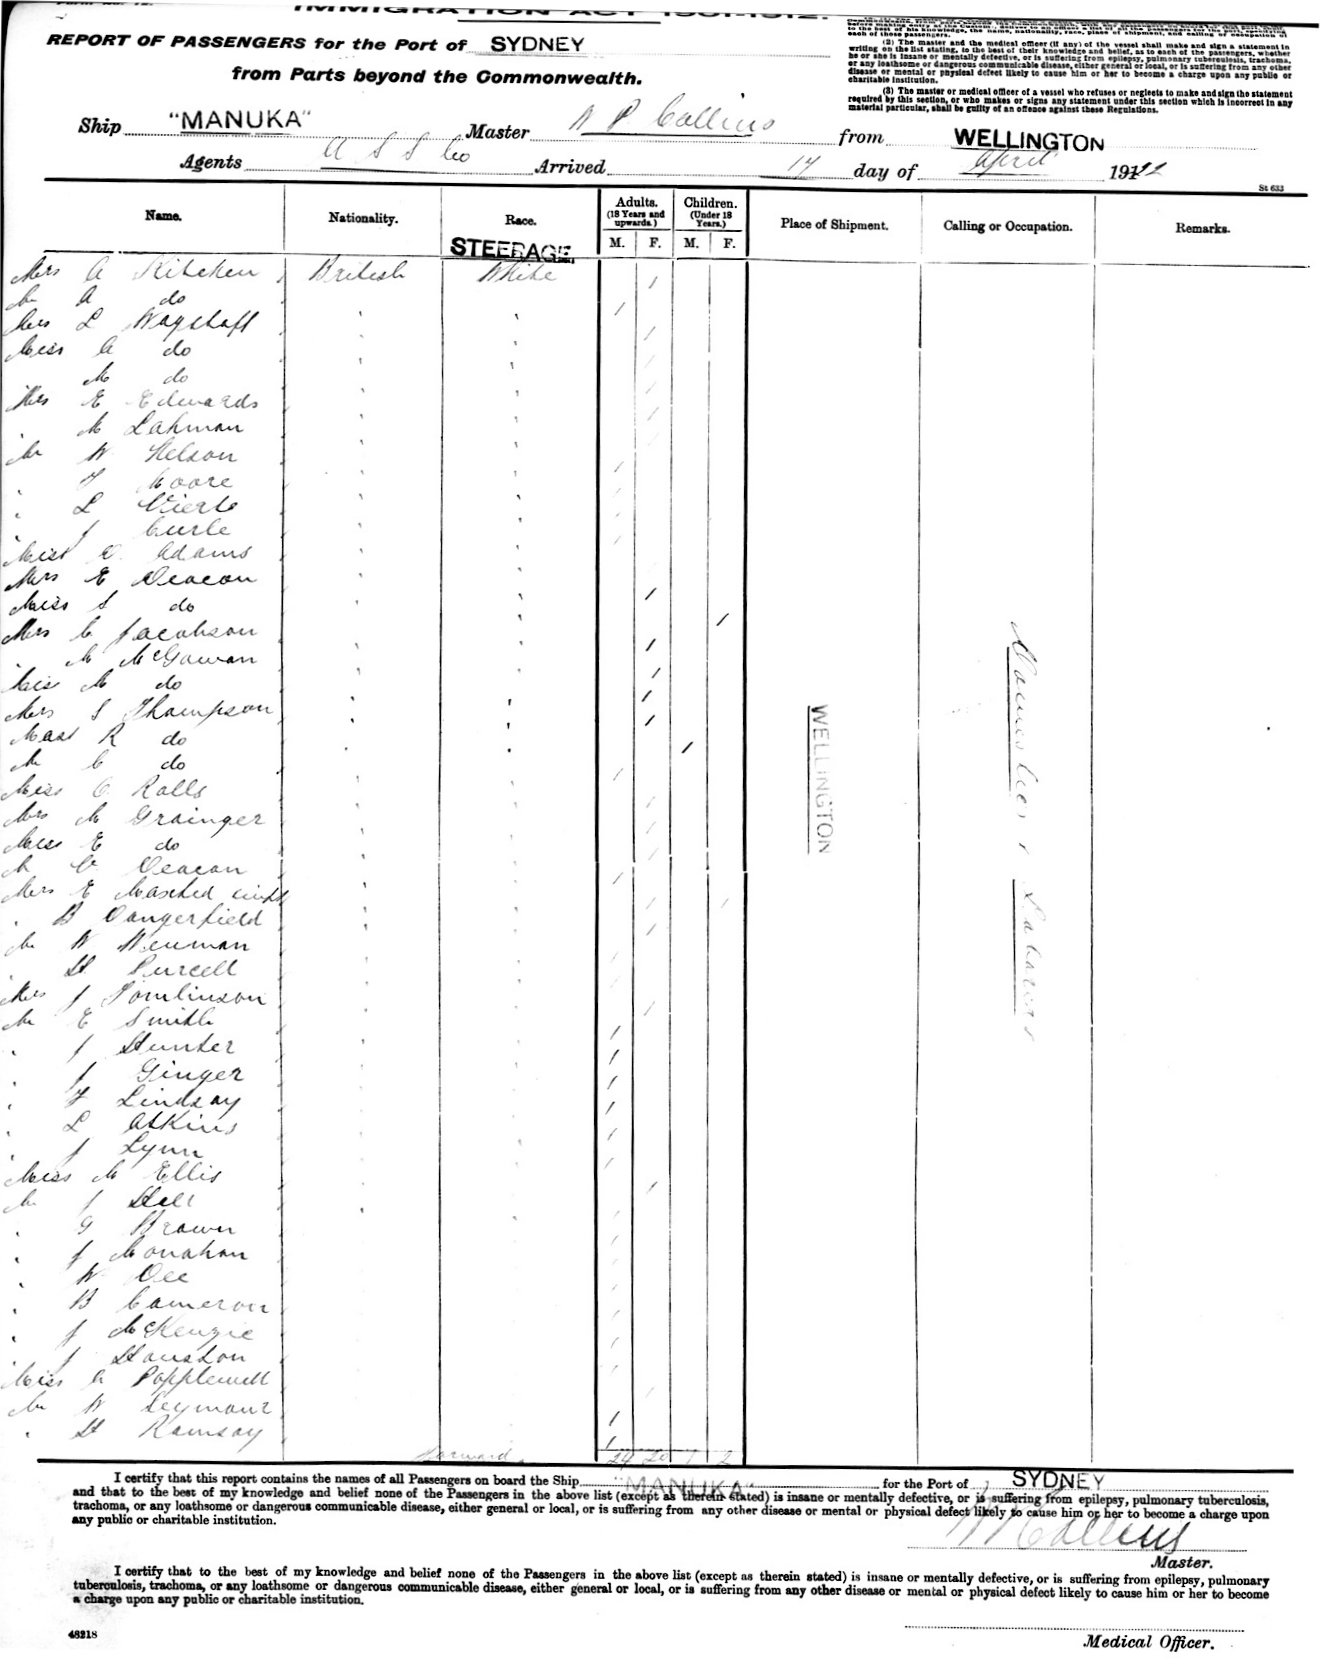 IMMIGRATION ACT 1901-1912.
REPORT OF PASSENGERS for the Port of SYDNEY
from Parts beyond the Commonwealth.
each of those passengers.
(2) The master and the medical officer (if any) of the vessel shall make and sign a statement in
writing on the list stating, to the best of their knowledge and belief, as to each of the passengers, whether
he or she is insane or mentally defective, or is suffering from epilepsy, pulmonary tuberculosis, trachoma,
or any loathsome or dangerous communicable disease, either general or local, or is suffering from any other
disease or mental or physical defect likely to cause him or her to become a charge upon any public or
charitable institution.
(3) The master or medical officer of a vessel who refuses or neglects to make and sign the statement
required by this section, or who makes or signs any statement under this section which is incorrect in any
material particular, shall be guilty of an offence against these Regulations.
Ship "MANUKA" Master Collins from WELLINGTON
Agents U S S Co Arrived 14 day of April 19
St 633
Name. Nationality. Race. Adults. (18 Years and upwards.) Children. (Under 18 Years.) Place of Shipment. Calling or Occupation. Remarks.
M. F. M. F.
STEERAGE
Mrs A Kitchen British White
Mr A do
Mrs L Wagstaff
Miss A do
M do
Mrs E Edwards
M Lahman
Mr W Nelson
F Moore
L
J Curle
Miss Adams
Mrs E Deacon
Miss S do
Mrs C Jacobson
M McGowan
Miss M do
Mrs S Thompson
Mast R do
Mr C do
Miss C Rolls
Mrs M Grainger
Miss E do
Mr V Deacon
Mrs E
B Dangerfield
Mr W Newman
H Purcell
Mrs J Tomlinson
Mr E Smith
J Hunter
J Ginger
F Lindsay
L Atkins
J Lynn
Miss M Ellis
Mr J Hall
G Brown
J Monahan
W Dee
B Cameron
J McKenzie
J Houston
Miss A Popplewell
Mr W Seymour
H Ramsay
WELLINGTON
Domestics & Labourers
Forward 24 20 1 2
I certify that this report contains the names of all Passengers on board the Ship "MANUKA" for the Port of SYDNEY
and that to the best of my knowledge and belief none of the Passengers in the above list (except as therein stated) is insane or mentally defective, or is suffering from epilepsy, pulmonary tuberculosis,
trachoma, or any loathsome or dangerous communicable disease, either general or local, or is suffering from any other disease or mental or physical defect likely to cause him or her to become a charge upon
any public or charitable institution.
Collins
Master.
I certify that to the best of my knowledge and belief none of the Passengers in the above list (except as therein stated) is insane or mentally defective, or is suffering from epilepsy, pulmonary
tuberculosis, trachoma, or any loathsome or dangerous communicable disease, either general or local, or is suffering from any other disease or mental or physical defect likely to cause him or her to become
a charge upon any public or charitable institution.
48218
Medical Officer.